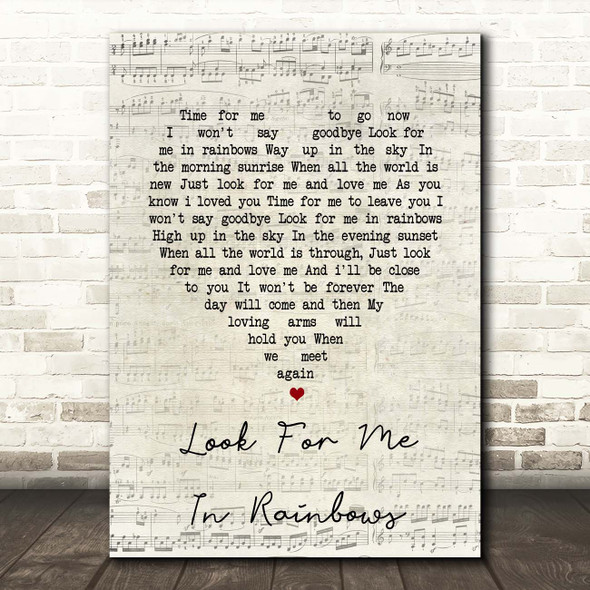 Time for me to go now
I won't say goodbye Look for
me in rainbows Way up in the sky In
the morning sunrise When all the world is
new Just look for me and love me As you
know i loved you Time for me to leave you I
won't say goodbye Look for me in rainbows
High up in the sky In the evening sunset
When all the world is through, Just look
for me and love me And i'll be close
to you It won't be forever The
day will come and then My
loving arms will
hold you When
we meet
again
Look For Me
In Rainbows